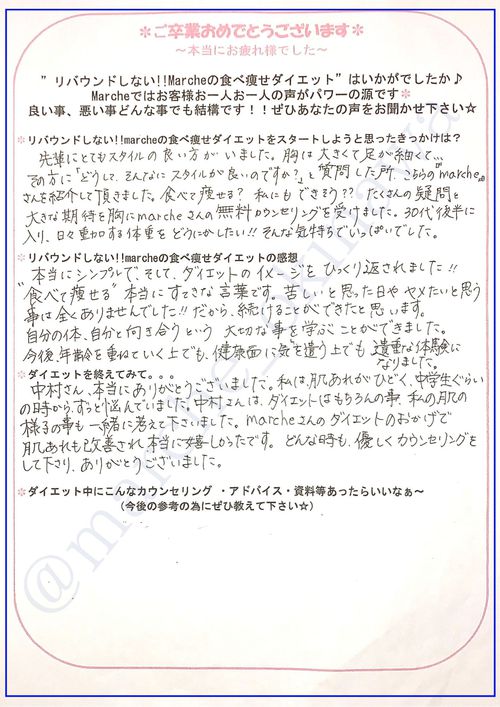 ＊ご卒業おめでとうございます＊
～本当にお疲れ様でした～
”リバウンドしない!!Marcheの食べ痩せダイエット”はいかがでしたか♪
Marcheではお客様お一人お一人の声がパワーの源です＊
良い事、悪い事どんな事でも結構です！！ぜひあなたの声をお聞かせ下さい☆
＊リバウンドしない!!marcheの食べ痩せダイエットをスタートしようと思ったきっかけは？
先輩にとてもスタイルの良い方がいました。胸は大きくて足が細くて…
その方に「どうして、そんなにスタイルが良いのですか？」と質問した所、こちらのmarche
さんを紹介して頂きました。食べて痩せる？私にもできる？？たくさんの疑問と
大きな期待を胸にmarcheさんの無料カウンセリングを受けました。30代後半に
入り、日々重加する体重をどうにかしたい!!そんな気持ちでいっぱいでした。
＊リバウンドしない!!marcheの食べ痩せダイエットの感想
本当にシンプルで、そして、ダイエットのイメージをひっくり返されました!!
“食べて痩せる”本当にすてきな言葉です。苦しいと思った日やヤメたいと思う
事は全くありませんでした!!だから、続けることができたと思います。
自分の体、自分と向き合うという大切な事を学ぶことができました。
今後、年齢を重ねていく上でも、健康面に気を遣う上でも遺重な体験に
なりました。
＊ダイエットを終えてみて。。。
中村さん、本当にありがとうございました。私は、肌あれがひどく、中学生ぐらい
の時から、ずっと悩んでいました。中村さんは、ダイエットはもちろんの事、私の肌の
様子の事も一緒に考えて下さいました。marcheさんのダイエットのおかげで
肌あれも改善され本当に嬉しかったです。どんな時も、優しくカウンセリングを
して下さり、ありがとうございました。
＊ダイエット中にこんなカウンセリング ・アドバイス・資料等あったらいいなぁ～
（今後の参考の為にぜひ教えて下さい☆）